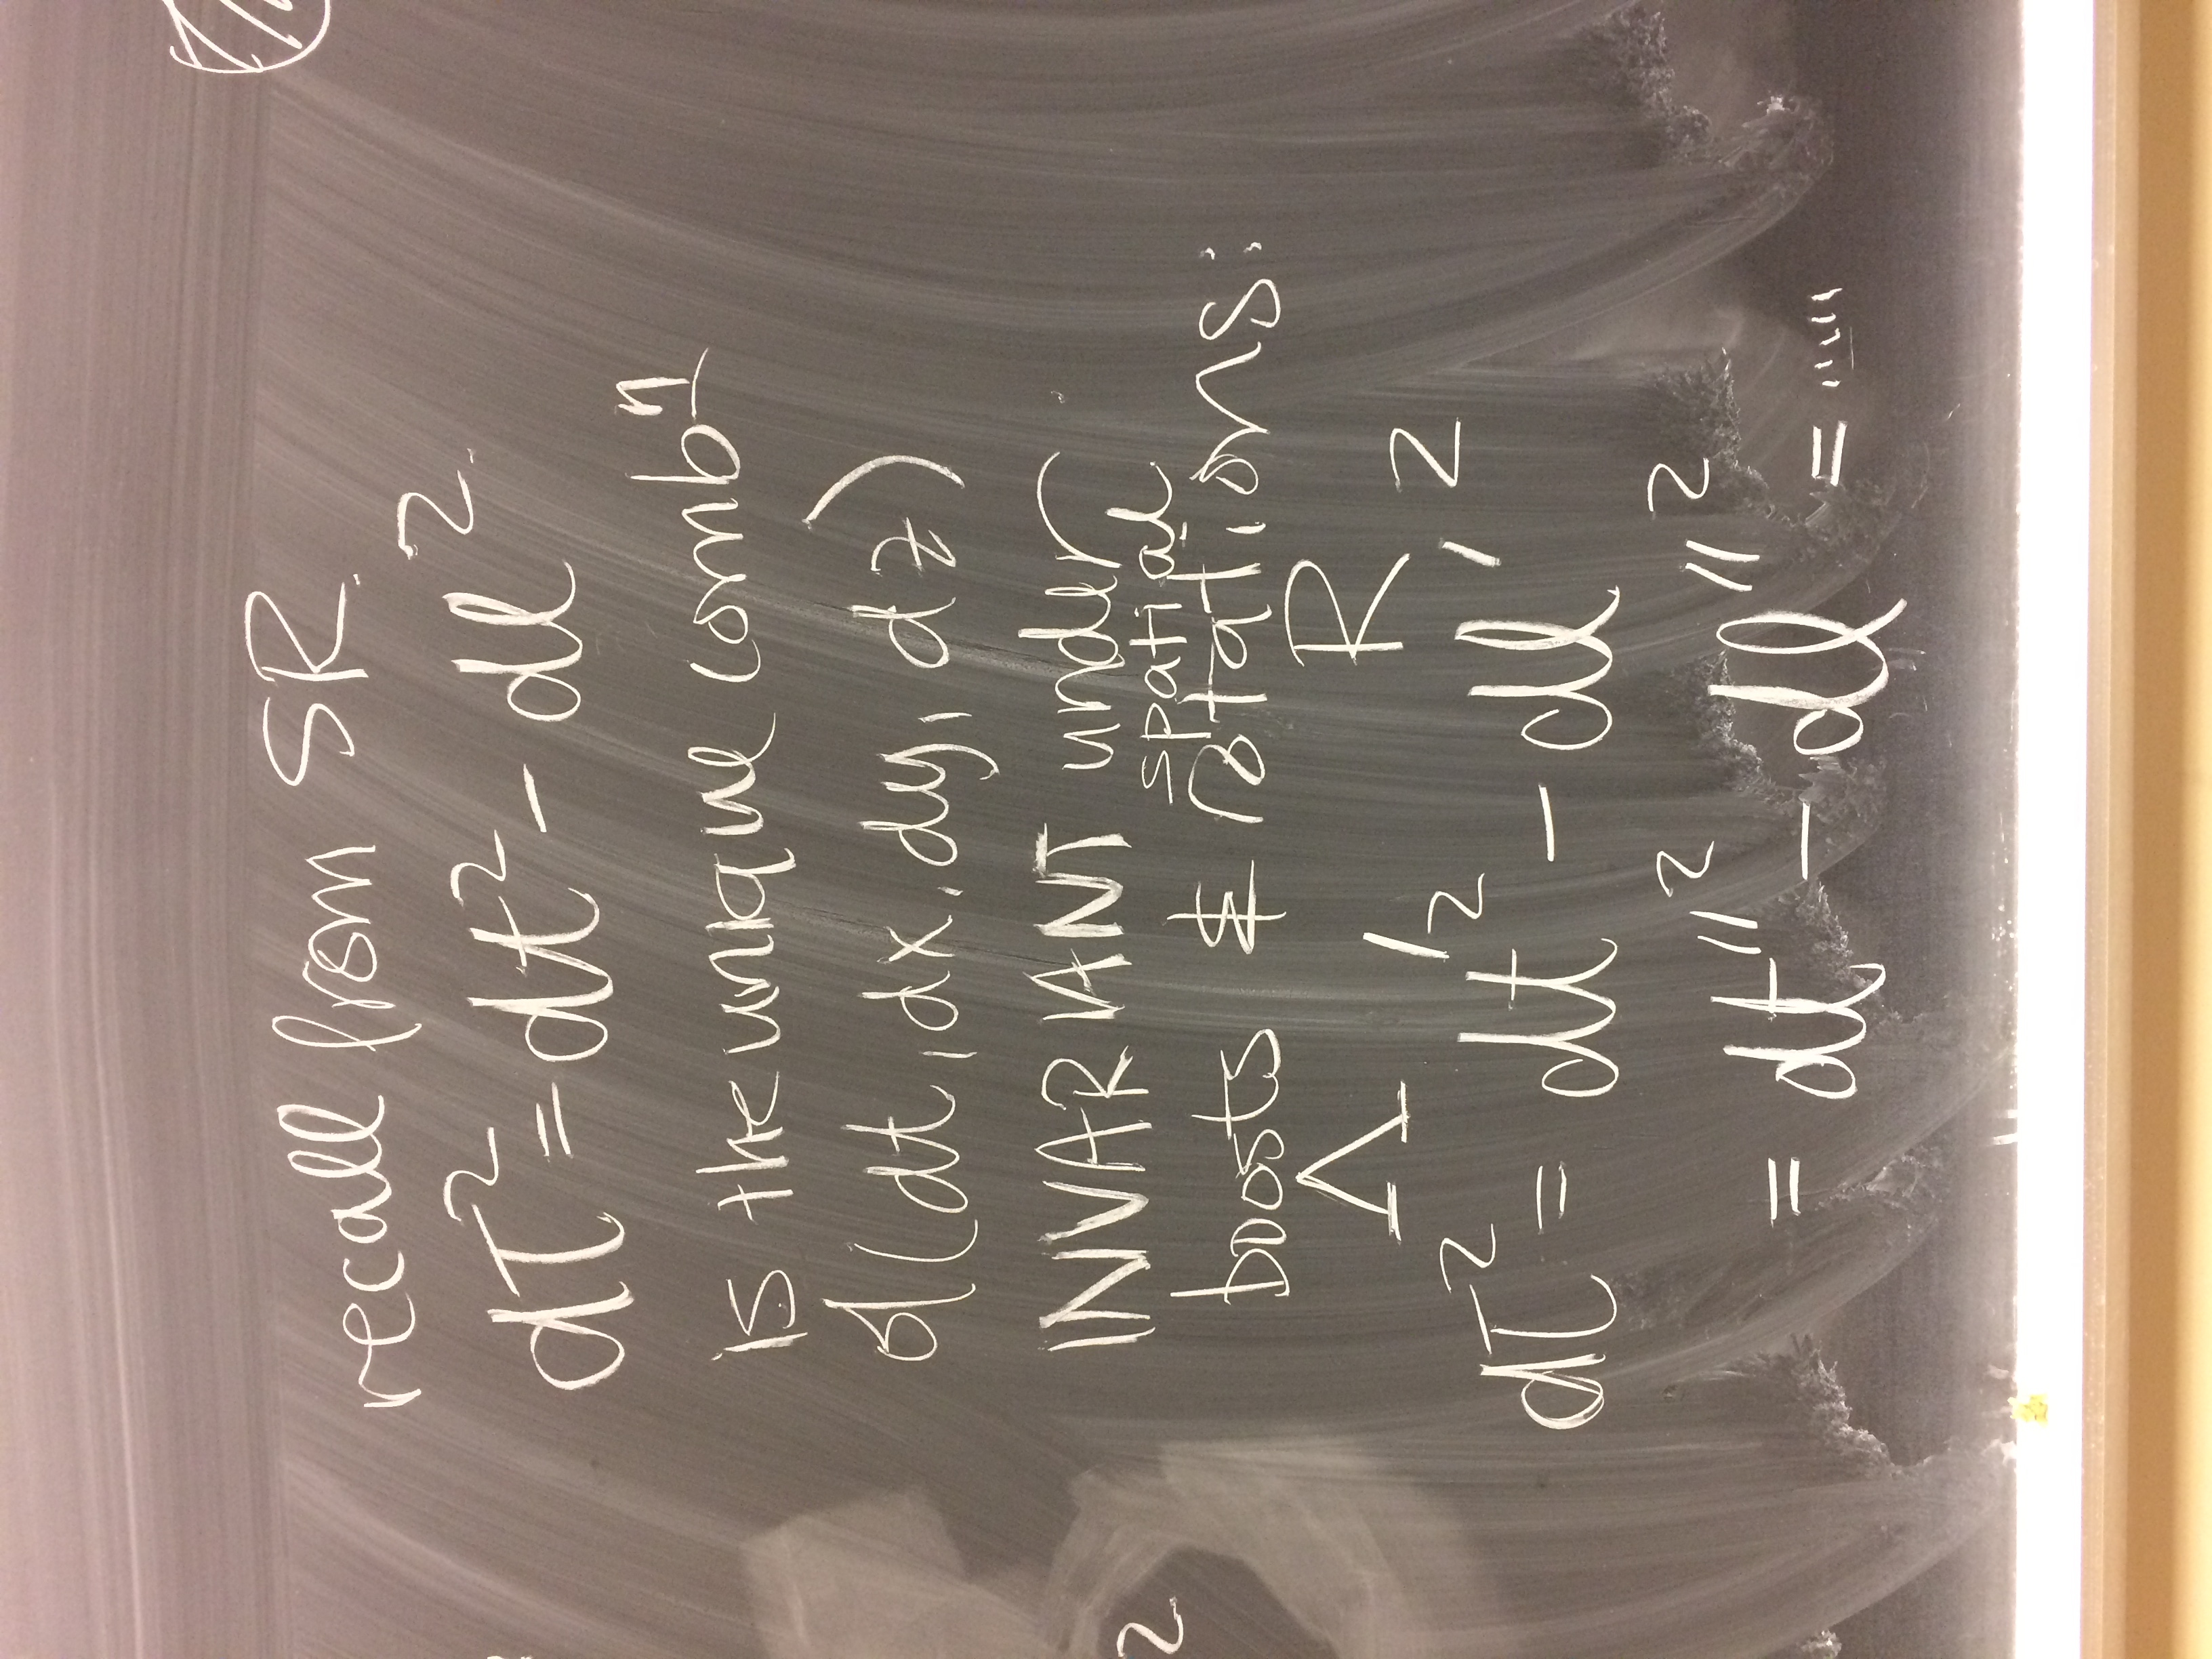 recall from SR:
dτ² = dt² - dl²
is the unique combⁿ
of (dt, dx, dy, dz)
INVARIANT under
boosts & spatial rotations:
Λ R
dτ² = dt'² - dl'²
= dt''² - dl''² = ''''
2